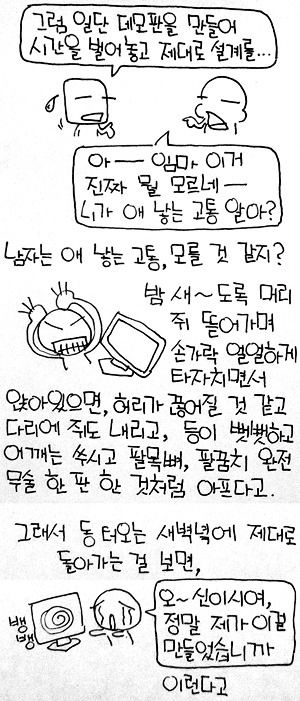 그럼 일단 데모판을 만들어
시간을 벌어놓고 제대로 설계를...
아 ── 임마 이거
진짜 뭘 모르네 ─
니가 애 낳는 고통 알아?
남자는 애 낳는 고통, 모를 것 같지?
밤 새~ 도록 머리
쥐 뜯어가며
손가락 열열하게
타자치면서
앉아있으면, 허리가 끊어질 것 같고
다리에 쥐도 내리고, 등이 뻣뻣하고
어깨는 쑤시고 팔목뼈, 팔꿈치 완전
무술 한 판 한 것처럼 아프다고.
그래서 동 터오는 새벽녘에 제대로
돌아가는 걸 보면,
뱅
뱅
오~ 신이시여,
정말 제가 이걸
만들었습니까
이런다고